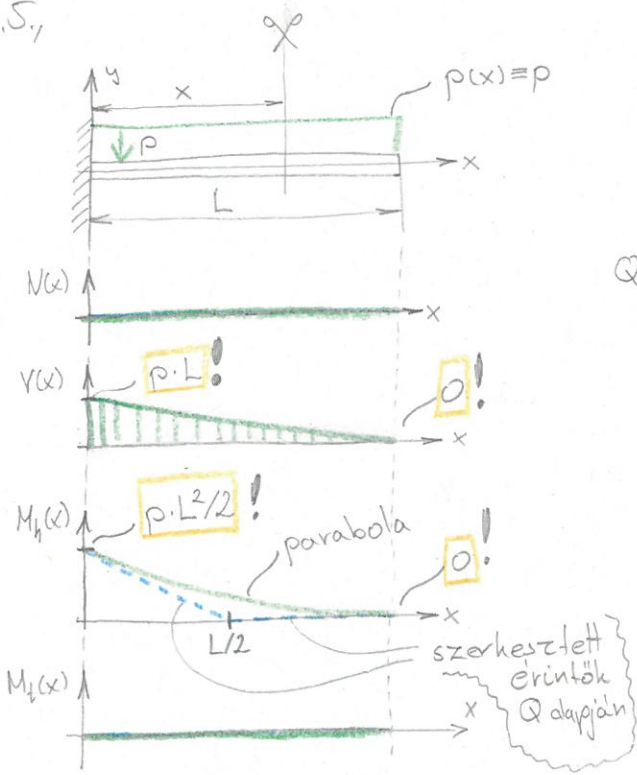 .5.,
y
x
p(x)≡p
p
x
L
N(x)
x
Q
V(x)
p·L !
0 !
x
M_h(x)
p·L²/2 !
parabola
0 !
x
L/2
szerkesztett
érintők
Q alapján
M_t(x)
x